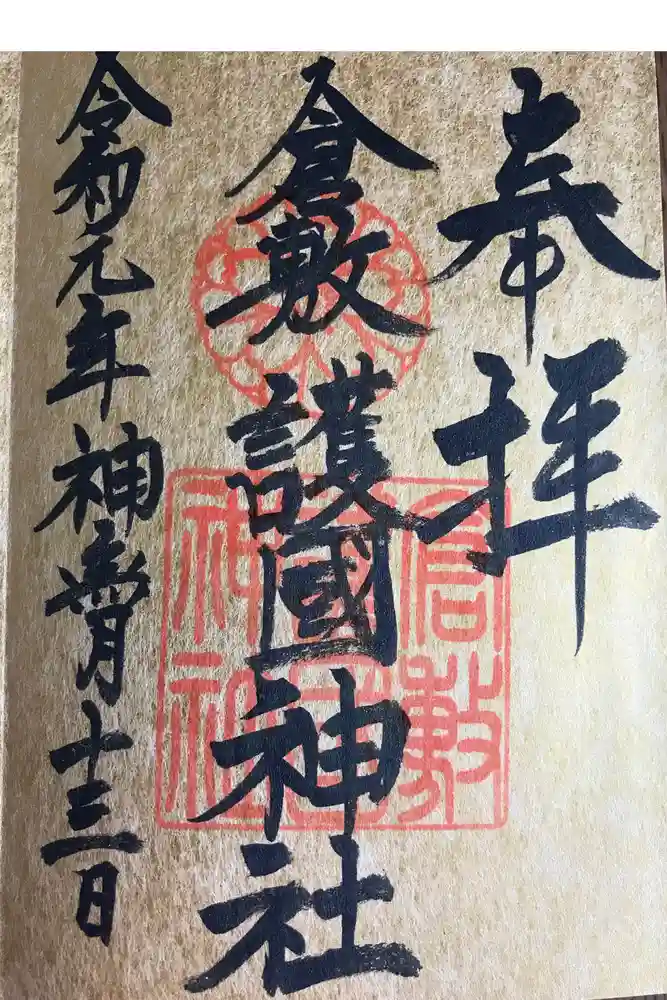 奉拝
倉敷護國神社
令和元年神月十三日
倉敷
神社